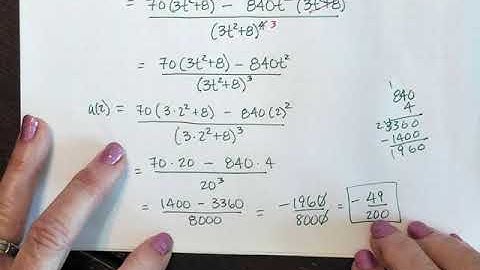 70(3t²+8) - 840t²(3t²+8)
(3t²+8)⁴ ³
= 70(3t²+8) - 840t²
(3t²+8)³
a(2) = 70(3·2²+8) - 840(2)²
(3·2²+8)³
= 70·20 - 840·4
20³
= 1400 - 3360
8000
= -1960
8000
= -49
200
1
840
4
2 3360
-1400
1960